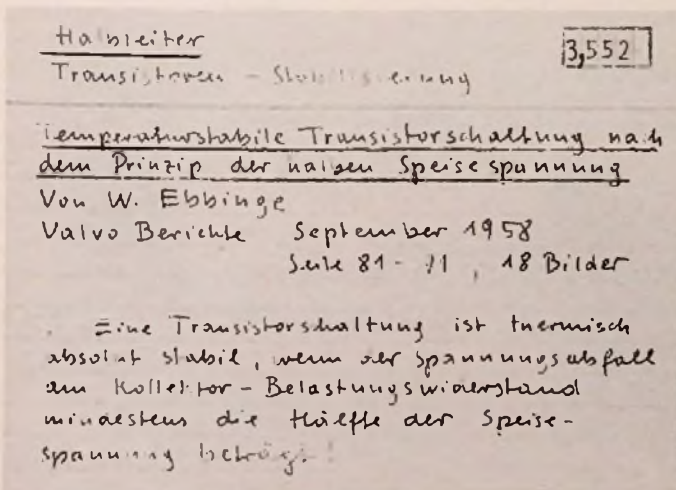 Halbleiter
3,552
Transistoren - Stabilisierung
Temperaturstabile Transistorschaltung nach
dem Prinzip der halben Speisespannung
Von W. Ebbinge
Valvo Berichte September 1958
Seite 81 - , 18 Bilder
Eine Transistorschaltung ist thermisch
absolut stabil, wenn der Spannungsabfall
am Kollektor-Belastungswiderstand
mindestens die Hälfte der Speise-
spannung beträgt!